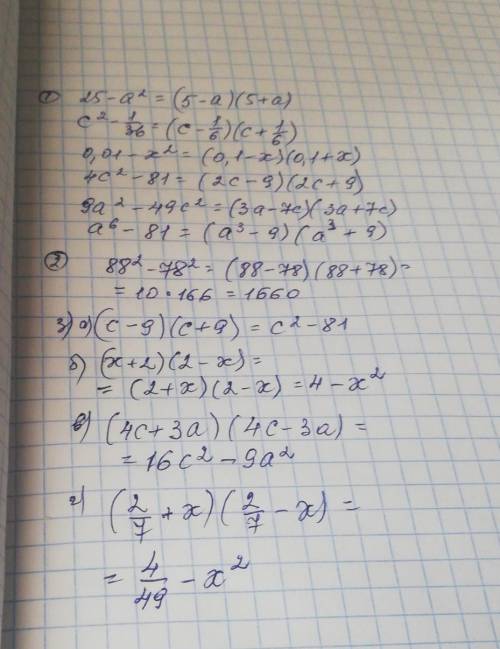 ① 25-a² = (5-a)(5+a)
c² - 1/36 = (c - 1/6)(c + 1/6)
0,01 - x² = (0,1-x)(0,1+x)
4c² - 81 = (2c-9)(2c+9)
9a² - 49c² = (3a-7c)(3a+7c)
a⁶ - 81 = (a³-9)(a³+9)
② 88² - 78² = (88-78)(88+78) =
= 10 · 166 = 1660
3) а) (c-9)(c+9) = c² - 81
б) (x+2)(2-x) =
= (2+x)(2-x) = 4 - x²
в) (4c+3a)(4c-3a) =
= 16c² - 9a²
г) (2/7 + x)(2/7 - x) =
= 4/49 - x²